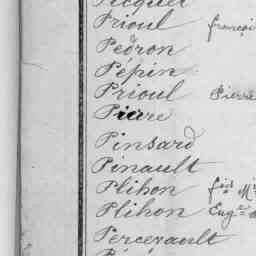 Picquet
Prioul françoi
Pedron
Pépin
Prioul Pierre
Pierre
Pinsard
Pinault
Plihon fçois M
Plihon Eugne
Percerault